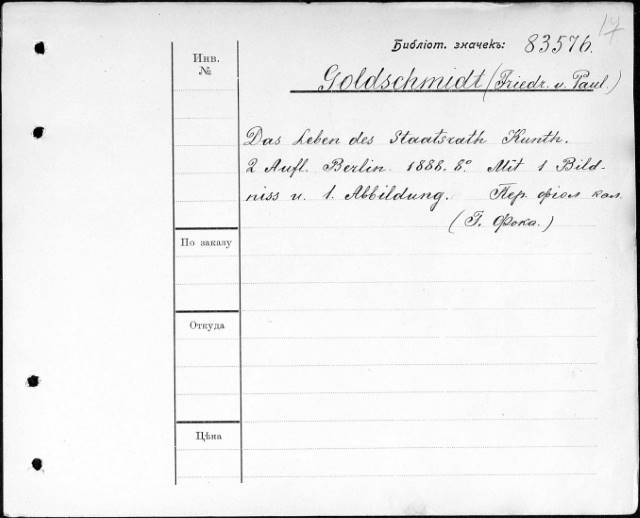 17
Библіот. значекъ: 83576.
Инв.
№
Goldschmidt (Friedr. u. Paul.)
Das Leben des Staatsrath Kunth.
2 Aufl. Berlin. 1888. 8°. Mit 1 Bild-
niss u. 1. Abbildung. Пер. фіол кол.
(Г. Фока.)
По заказу
Откуда
Цѣна